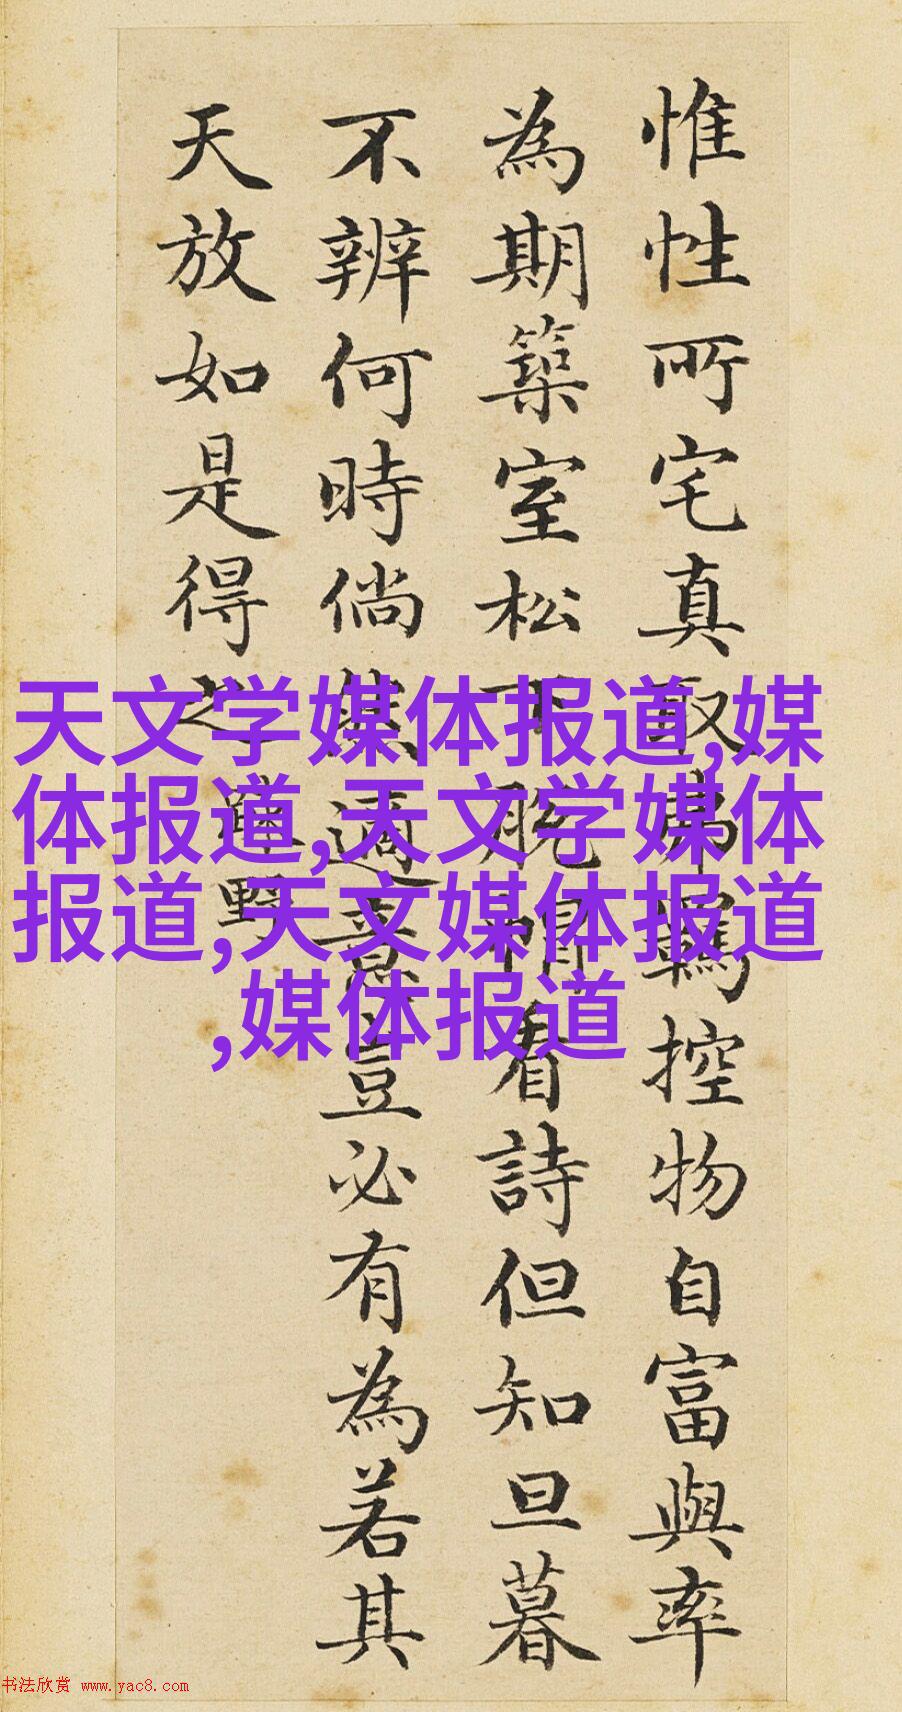 惟性所宅真取弗羈控物自富與率
為期築室松下脱帽看詩但知旦暮
不辨何時倘然適意豈必有為若其
天放如是得之
疎野
天文学媒体报道,媒
体报道,天文学媒体
报道,天文媒体报道
,媒体报道
书法欣赏 www.yac8.com